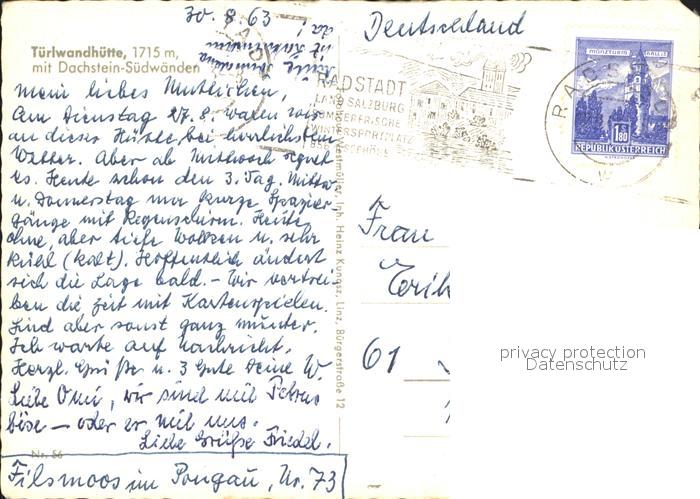 30. 8. 63
Türlwandhütte, 1715 m,
mit Dachstein-Südwänden
mein liebes Muttichen,
Am Dienstag 27. 8. waren wir
an dieser Hütte bei herrlichstem
Wetter. Aber ab Mittwoch regnet
es. Heute schon den 3. Tag. Mittw.
u. Donnerstag nur kurze Spazier-
gänge mit Regenschirm. Heute
ohne, aber tiefe Wolken u. sehr
kühl (kalt). Hoffentlich ändert
sich die Lage bald. – Wir vertrei-
ben die Zeit mit Kartenspielen.
Sind aber sonst ganz munter.
Ich warte auf Nachricht.
Herzl. Grüße u. 3 Gute Deine W.
Liebe Omi, wir sind mit Petrus
böse – oder er mit uns.
Liebe Grüße Friedel.
Nr. 56
Filzmoos im Pongau, Nr. 73
Inh. Heinz Kunger, Linz, Bürgerstraße 12
Deutschland
RADSTADT
LAND SALZBURG
SOMMERFRISCHE
WINTERSPORTPLATZ
RADSTADT
MÜNZTURM HALL I. T.
1.80
REPUBLIK ÖSTERREICH
Frau
61
privacy protection
Datenschutz